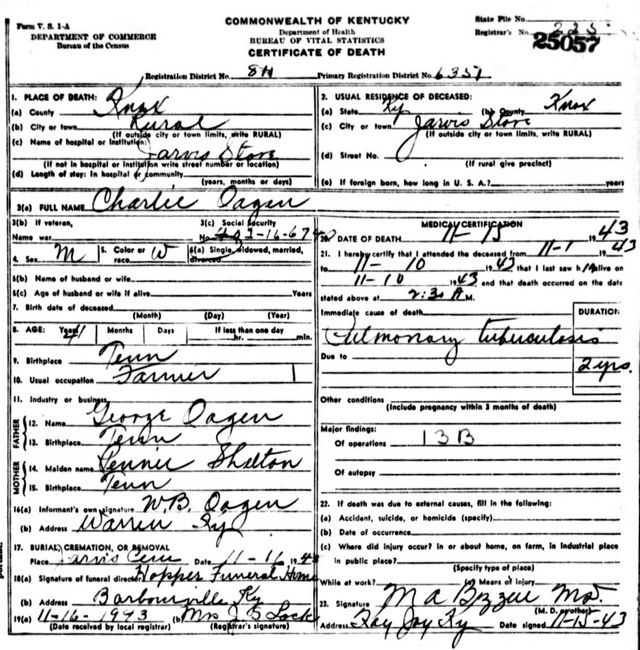 Form V. S. 1-A
DEPARTMENT OF COMMERCE
Bureau of the Census
COMMONWEALTH OF KENTUCKY
Department of Health
BUREAU OF VITAL STATISTICS
CERTIFICATE OF DEATH
State File No.
Registrar's No. 225
25057
Registration District No. Primary Registration District No. 6351
1. PLACE OF DEATH:
(a) County Knox
(b) City or town Rural
(If outside city or town limits, write RURAL)
(c) Name of hospital or institution:
Jarvis Store
(If not in hospital or institution write street number or location)
(d) Length of stay: In hospital or community
(years, months or days)
2. USUAL RESIDENCE OF DECEASED:
(a) State Ky (b) County Knox
(c) City or town Jarvis Store
(If outside city or town limits, write RURAL)
(d) Street No.
(If rural give precinct)
(e) If foreign born, how long in U. S. A.? years
3(a) FULL NAME Charlie Oagen
3(b) If veteran,
Name war
3(c) Social Security
No.
4. Sex M 5. Color or race W 6(a) Single, widowed, married, divorced
6(b) Name of husband or wife
6(c) Age of husband or wife if alive Years
7. Birth date of deceased
(Month) (Day) (Year)
8. AGE: Years 41 Months Days If less than one day
hr. min.
9. Birthplace Tenn
10. Usual occupation Farmer
11. Industry or business
FATHER
12. Name George Oagen
13. Birthplace Tenn
MOTHER
14. Maiden name Shelton
15. Birthplace Tenn
16(a) Informant's own signature W.B. Oagen
(b) Address Warren Ky
17. BURIAL, CREMATION, OR REMOVAL
Place Jarvis Cem Date 11-16 1943
18(a) Signature of funeral director Hopper Funeral Home
(b) Address Barbourville Ky
19(a) 11-16-1943 (b) Mrs
(Date received by local registrar) (Registrar's signature)
MEDICAL CERTIFICATION
20. DATE OF DEATH 11-15 1943
21. I hereby certify that I attended the deceased from 11-1 1943
to 11-10 1943 that I last saw him alive on
11-10 1943 and that death occurred on the date
stated above at 2:30 A M.
Immediate cause of death
DURATION
Pulmonary tuberculosis
Due to
2 yrs.
Other conditions
(Include pregnancy within 3 months of death)
Major findings:
Of operations 13B
Of autopsy
22. If death was due to external causes, fill in the following:
(a) Accident, suicide, or homicide (specify)
(b) Date of occurrence
(c) Where did injury occur? In or about home, on farm, in industrial place
in public place?
(Specify type of place)
While at work? (e) Means of injury
23. Signature M A Bizzee MD.
(M. D. or other)
Address Kay Jay Ky Date signed 11-15-43